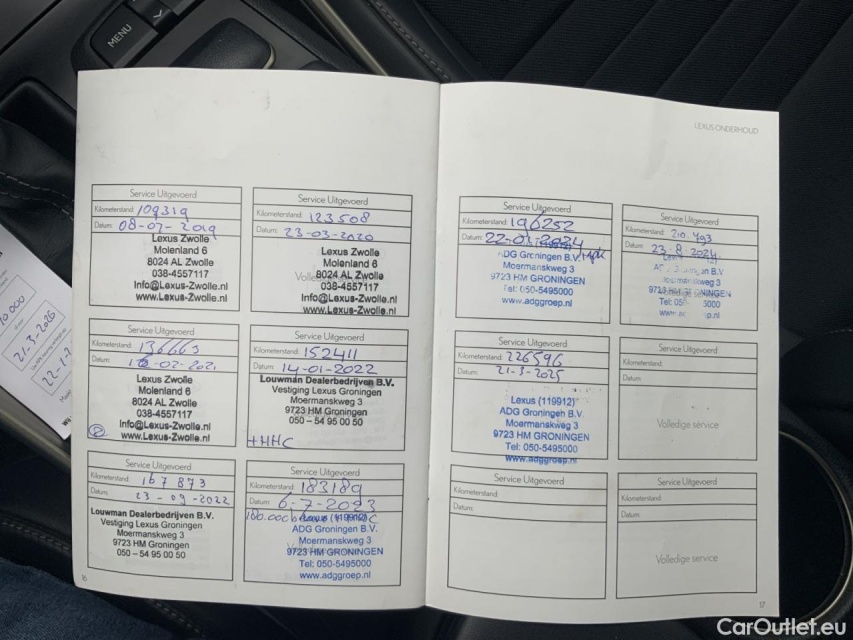 MENU
LEXUS ONDERHOUD
Service Uitgevoerd
Kilometerstand: 109319
Datum: 08-07-2019
Lexus Zwolle
Molenland 6
8024 AL Zwolle
038-4557117
Info@Lexus-Zwolle.nl
www.Lexus-Zwolle.nl
Service Uitgevoerd
Kilometerstand: 123508
Datum: 23-03-2020
Lexus Zwolle
Molenland 6
8024 AL Zwolle
038-4557117
Info@Lexus-Zwolle.nl
www.Lexus-Zwolle.nl
Service Uitgevoerd
Kilometerstand: 136663
Datum: -02-2021
Lexus Zwolle
Molenland 6
8024 AL Zwolle
038-4557117
Info@Lexus-Zwolle.nl
www.Lexus-Zwolle.nl
Service Uitgevoerd
Kilometerstand: 152411
Datum: 14-01-2022
Louwman Dealerbedrijven B.V.
Vestiging Lexus Groningen
Moermanskweg 3
9723 HM Groningen
050 – 54 95 00 50
+HHC
Service Uitgevoerd
Kilometerstand: 167873
Datum: 23-09-2022
Louwman Dealerbedrijven B.V.
Vestiging Lexus Groningen
Moermanskweg 3
9723 HM Groningen
050 – 54 95 00 50
Service Uitgevoerd
Kilometerstand: 183189
Datum: 6-7-2023
Lexus (119912)
ADG Groningen B.V.
Moermanskweg 3
9723 HM GRONINGEN
Tel: 050-5495000
www.adggroep.nl
16
Service Uitgevoerd
Kilometerstand: 196252
Datum: 22-01-2024
ADG Groningen B.V.
Moermanskweg 3
9723 HM GRONINGEN
Tel: 050-5495000
www.adggroep.nl
Service Uitgevoerd
Kilometerstand: 210.493
Datum: 23-8-2024
Service Uitgevoerd
Kilometerstand: 226596
Datum: 21-3-2025
Lexus (119912)
ADG Groningen B.V.
Moermanskweg 3
9723 HM GRONINGEN
Tel: 050-5495000
www.adggroep.nl
Service Uitgevoerd
Kilometerstand:
Datum:
Volledige service
Service Uitgevoerd
Kilometerstand:
Datum:
Service Uitgevoerd
Kilometerstand:
Datum:
Volledige service
17
21-3-2026
CarOutlet.eu